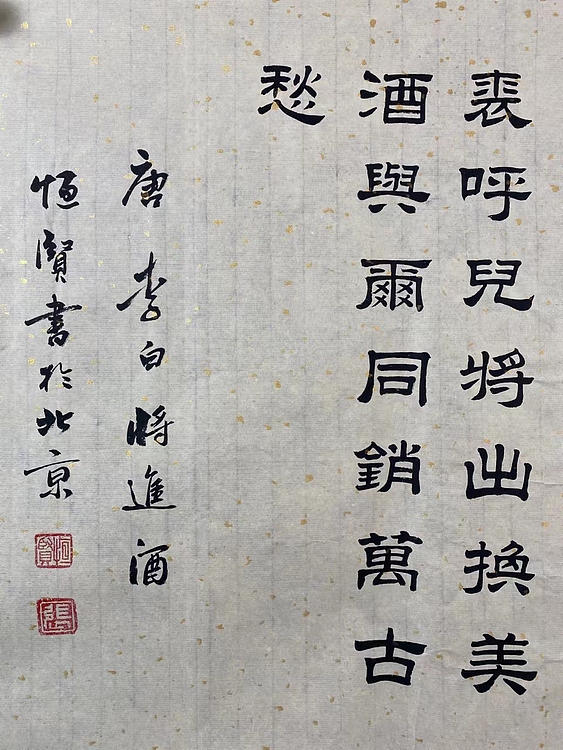 裘呼兒將出換美
酒與爾同銷萬古
愁
唐李白將進酒
恒賢書於北京
恒賢
張